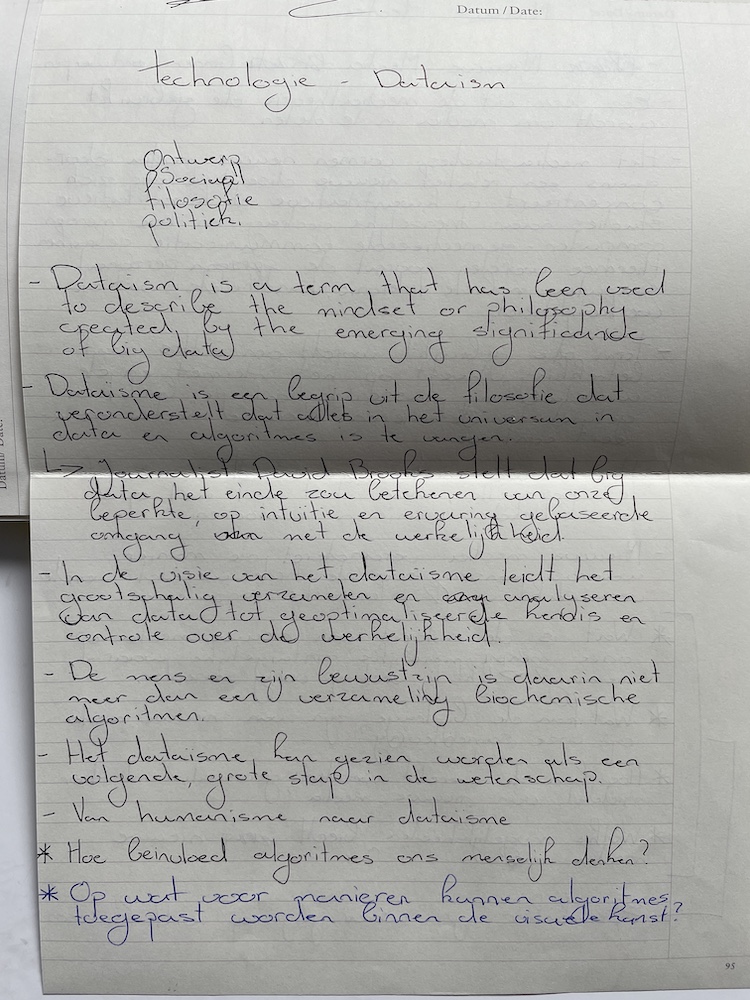 Datum / Date:
technologie - Dataism
Ontwerp
Sociaal
filosofie
politiek.
- Dataism is a term that has been used
to describe the mindset or philosophy
created by the emerging significance
of big data
- Dataïsme is een begrip uit de filosofie dat
veronderstelt dat alles in het universum in
data en algoritmes is te vangen.
↳ Journalist David Brooks stelt dat big
data het einde zou betekenen van onze
beperkte, op intuïtie en ervaring gebaseerde
omgang met de werkelijkheid.
- In de visie van het dataïsme leidt het
grootschalig verzamelen en analyseren
van data tot geoptimaliseerde kennis en
controle over de werkelijkheid.
- De mens en zijn bewustzijn is daarin niet
meer dan een verzameling biochemische
algoritmen.
- Het dataïsme kan gezien worden als een
volgende, grote stap in de wetenschap.
- Van humanisme naar dataïsme
* Hoe beinvloed algoritmes ons menselijk denken?
* Op wat voor manieren kunnen algoritmes
toegepast worden binnen de visuele kunst?
95
Datum/ Date: